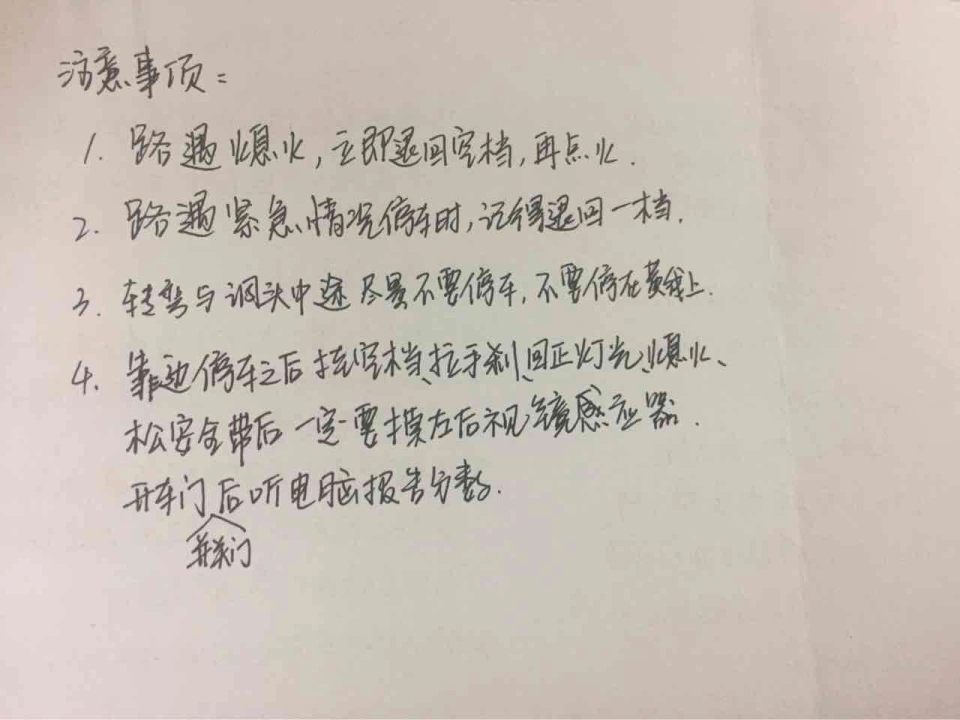 注意事项:
1. 路遇熄火,立即退回空档,再点火.
2. 路遇紧急情况停车时,记得退回一档.
3. 转弯与调头中途尽量不要停车,不要停在黄线上.
4. 靠边停车之后挂空档、拉手刹、回正灯光、熄火、
松安全带后一定要摸左后视镜感应器.
开车门后听电脑报告分数.
并关门